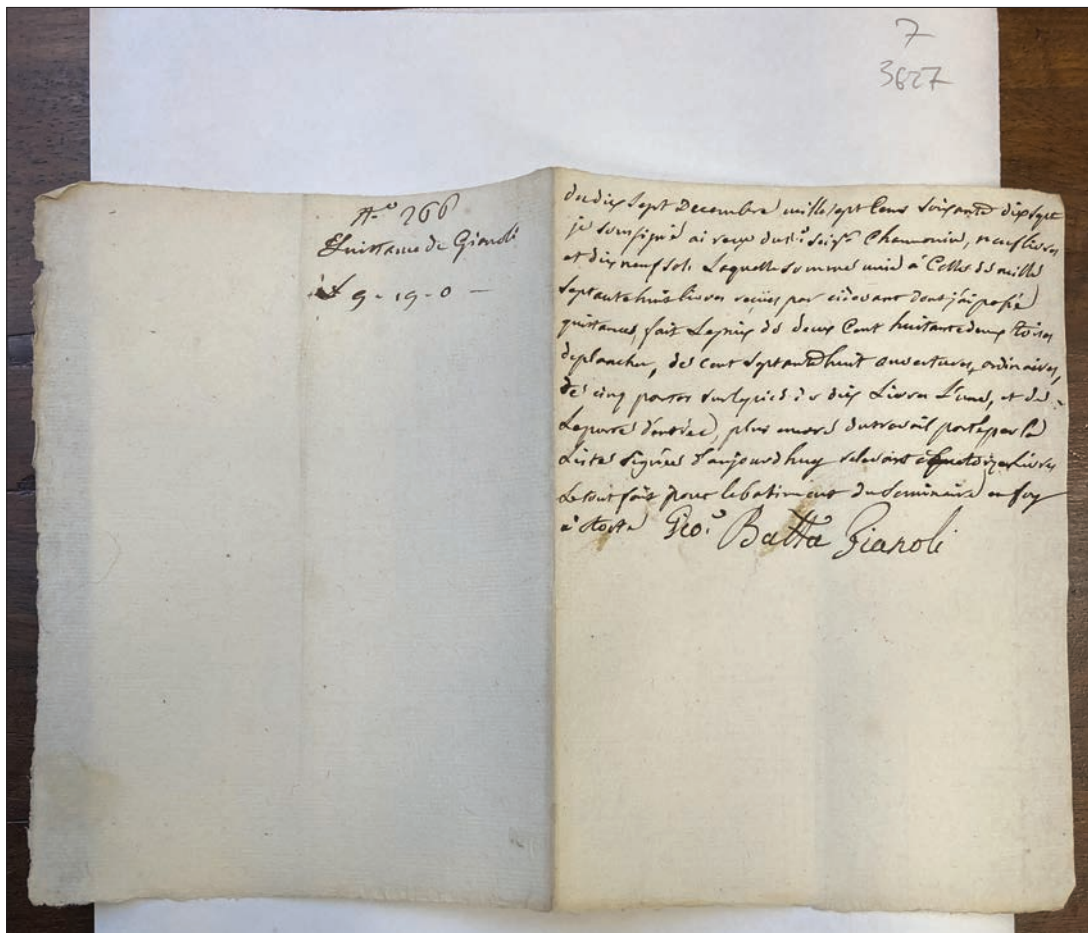 7
3627
N.º 266
Quittance de Gianoli
£ 9 - 19 - 0 -
du dix sept Decembre mille sept Cens soixante dix sept
je soussigné ai reçu dud.t Seig.r Chanonoine, neuf livres
et dix neuf sols Laquelle somme unie à Celle de mille
septante huit livres reçues par cidevant dont j'ai passé
quittances, fait Le prix de deux Cent huitante deux toises
de plancher, de cent septante huit ouvertures, ordinaires,
de cinq portes sur le pied de dix Livres L'une, et de
La porte d'entrée, plus encore du travail porté par la
Liste signée d'aujourdhuy relevant à quatorze Livres
Le tout fait pour le batiment du Seminaire en foy
à Aoste Gio. Batta Gianoli